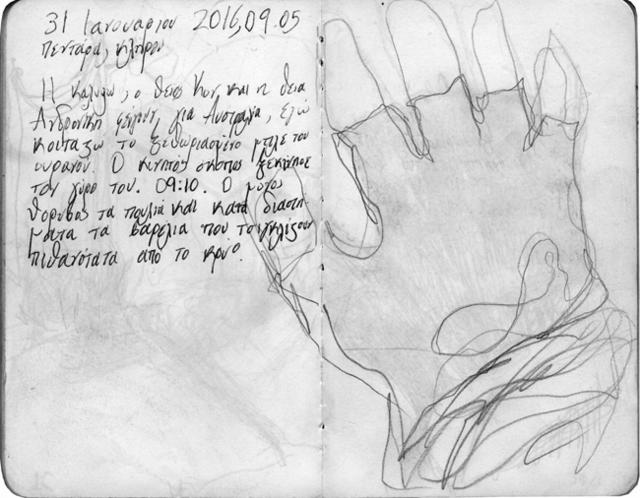 31 Ιανουαρίου 2016, 09.05
Πεντάρα, κλήρου
Η Καλυψώ, ο θείος Κων, και η θεια
Ανδρονίκη φεύγουν για Αυστραλία, εγώ
κοιτάζω το ξεθωριασμένο μπλε του
ουρανού. Ο κυνηγός σκύλος ξεκίνησε
τον γύρο του. 09:10. Ο μόνος
θόρυβος τα πουλιά και κατά διαστή-
ματα τα βαρέλια που τσιγκλίζουν
πιθανότατα από το κρύο.